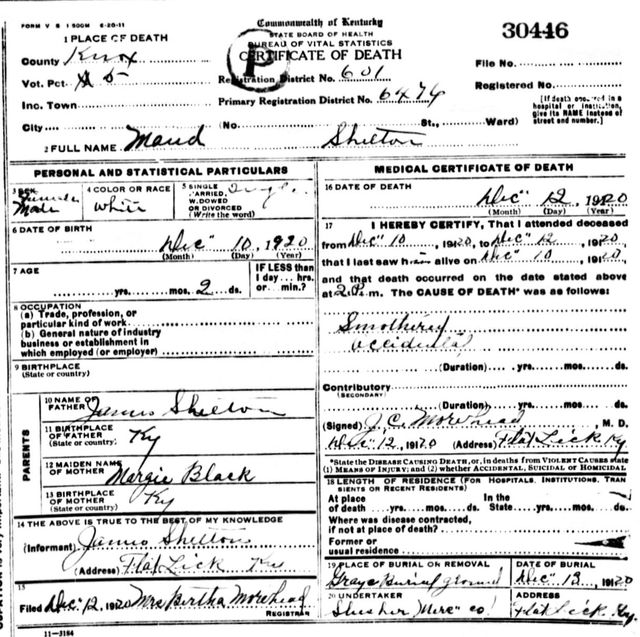 FORM V S 1 500M 6-20-11
Commonwealth of Kentucky
STATE BOARD OF HEALTH
BUREAU OF VITAL STATISTICS
CERTIFICATE OF DEATH
30446
P
1 PLACE OF DEATH
County Knox
Vot. Pct. # 5
Inc. Town
City
Registration District No. 601
Primary Registration District No. 6474
(No. St., Ward)
File No.
Registered No.
[If death occurred in a hospital or institution, give its NAME instead of street and number.]
2 FULL NAME Maud Shelton
PERSONAL AND STATISTICAL PARTICULARS
3 SEX
4 COLOR OR RACE White
5 SINGLE MARRIED, WIDOWED OR DIVORCED (Write the word) Single
6 DATE OF BIRTH
Dec 10, 1920
(Month) (Day) (Year)
7 AGE
yrs. mos. 2 ds.
IF LESS than 1 day... hrs. or min.?
8 OCCUPATION
(a) Trade, profession, or particular kind of work
(b) General nature of industry business or establishment in which employed (or employer)
9 BIRTHPLACE
(State or country)
PARENTS
10 NAME OF FATHER James Shelton
11 BIRTHPLACE OF FATHER (State or country) Ky
12 MAIDEN NAME OF MOTHER Margie Black
13 BIRTHPLACE OF MOTHER (State or country) Ky
14 THE ABOVE IS TRUE TO THE BEST OF MY KNOWLEDGE
(Informant) James Shelton
(Address) Flat Lick Ky
15
Filed Dec. 12, 1920 Mrs Bertha Morehead
REGISTRAR
11-3184
MEDICAL CERTIFICATE OF DEATH
16 DATE OF DEATH
Dec 12 1920
(Month) (Day) (Year)
17 I HEREBY CERTIFY, That I attended deceased
from Dec 10, 1920, to Dec 12, 1920,
that I last saw h alive on Dec 10, 1920,
and that death occurred on the date stated above
at 2 P. m. The CAUSE OF DEATH* was as follows:
Smothered
accidental
(Duration) yrs. mos. ds.
Contributory
(SECONDARY)
(Duration) yrs. mos. ds.
(Signed) J. C. Morehead, M. D.
Dec 12, 1920 (Address) Flat Lick Ky
*State the DISEASE CAUSING DEATH, or, in deaths from VIOLENT CAUSES state (1) MEANS OF INJURY; and (2) whether ACCIDENTAL, SUICIDAL OR HOMICIDAL
18 LENGTH OF RESIDENCE (FOR HOSPITALS, INSTITUTIONS, TRANSIENTS OR RECENT RESIDENTS)
At place of death yrs. mos. ds. In the State yrs. mos. ds.
Where was disease contracted, if not at place of death?
Former or usual residence
19 PLACE OF BURIAL OR REMOVAL
Grays Burial ground
DATE OF BURIAL
Dec 13, 1920
20 UNDERTAKER
Slusher Merc Co.
ADDRESS
Flat Lick, Ky.